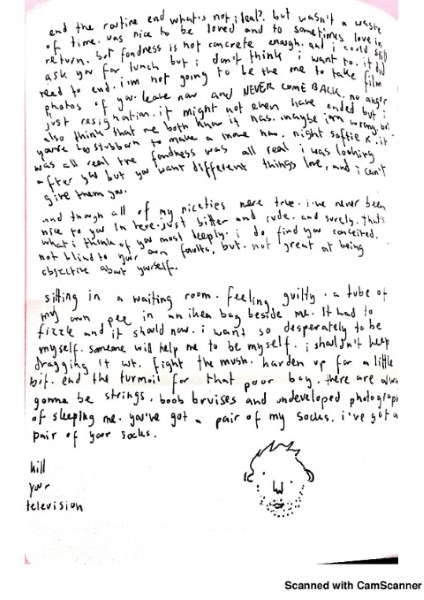 end the routine end what's not ideal?. but wasn't a waste
of time. was nice to be loved and to sometimes love in
return. but fondness is not concrete enough. and i could still
ask you for lunch but i don't think i want to. it did
need to end. i'm not going to be the one to take film
photos of you. leave now and NEVER COME BACK. no anger
just resignation. it might not even have ended but i
also think that we both know it has. maybe i'm wrong. or
you're too stubborn to make a move now. night softie x. it
was all real the fondness was all real i was looking
after you but you want different things love, and i can't
give them you.
and though all of my niceties were true. i've never been
nice to you in here. just bitter and rude. and surely. that's
what i think of you most deeply. i do find you conceited.
not blind to your own faults. but. not great at being
objective about yourself.
sitting in a waiting room. feeling guilty. a tube of
my own pee in an ikea bag beside me. it had to
fizzle and it should now. i want so desperately to be
myself. someone will help me to be myself. i shouldn't keep
dragging it out. fight the mush. harden up for a little
bit. end the turmoil for that poor boy. there are always
gonna be strings. boob bruises and undeveloped photographs
of sleeping me. you've got a pair of my socks. i've got a
pair of your socks.
kill
your
television
Scanned with CamScanner